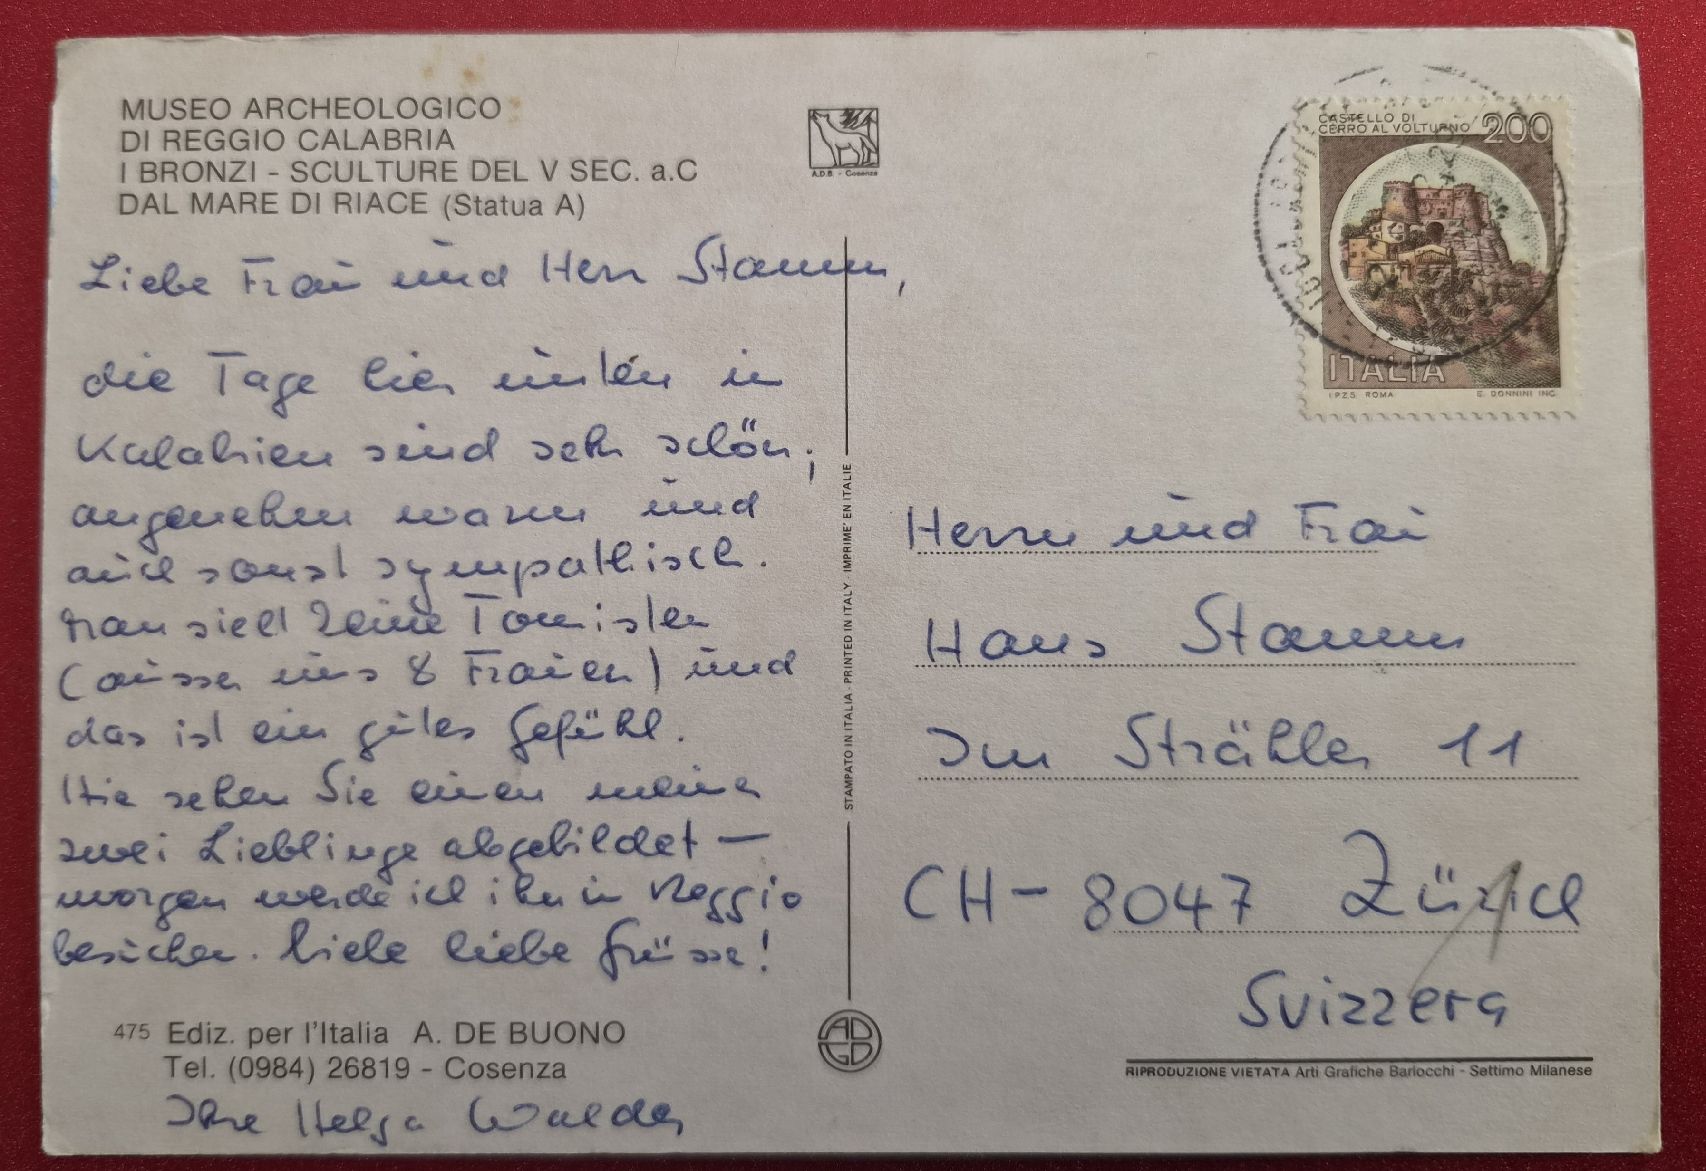 MUSEO ARCHEOLOGICO
DI REGGIO CALABRIA
I BRONZI - SCULTURE DEL V SEC. a.C
DAL MARE DI RIACE (Statua A)
A.D.B. - Cosenza
Liebe Frau und Herr Stamm,
die Tage hier unten in
Kalabrien sind sehr schön;
angenehm warm und
auch sonst sympathisch.
Man sieht keine Touristen
(ausser uns 8 Frauen) und
das ist ein gutes Gefühl.
Hier sehen Sie einen meiner
zwei Lieblinge abgebildet —
morgen werde ich ihn in Reggio
besuchen. Viele liebe Grüsse!
475 Ediz. per l'Italia A. DE BUONO
Tel. (0984) 26819 - Cosenza
Ihre Helga Walder
STAMPATO IN ITALIA - PRINTED IN ITALY IMPRIME' EN ITALIE
ADGB
CASTELLO DI
CERRO AL VOLTURNO 200
ITALIA
I.P.Z.S. ROMA E. DONNINI INC.
Herrn und Frau
Hans Stamm
Im Strähler 11
CH-8047 Zürich
Svizzera
RIPRODUZIONE VIETATA Arti Grafiche Barlocchi - Settimo Milanese